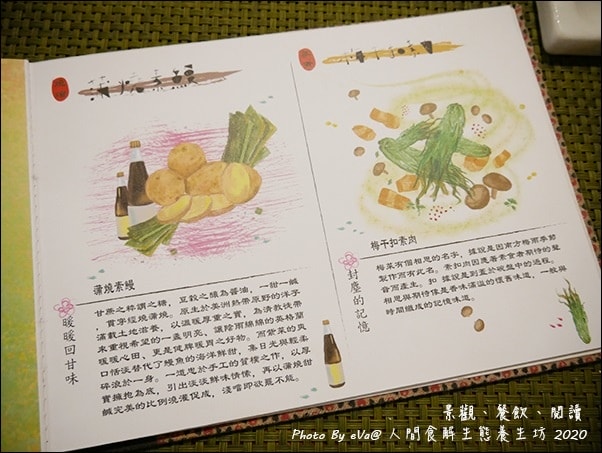 蒲燒素鰻
暖暖回甘味
甘蔗之粹謂之糖，豆穀之釀為醬油，一甜一鹹
，貫穿經燒蒲燒。原生於美洲熱帶原野的洋芋
滿載土地滋養，以溫暖厚重之實，為清教徒帶
來重視希望的一盞明亮，讓陰雨綿綿的英格蘭
暖暖心田、更是健脾暖胃之好物。而紫菜的爽
口恬淡替代了鰻魚的海洋鮮甜，集日光與輕柔
碎浪於一身。一道忠於手工的質樸之作，以厚
實擁抱為底，引出淡淡鮮味情愫，再以蒲燒甜
鹹完美的比例浪漫促成，淺嚐即欲罷不能。
梅干扣素肉
封塵的記憶
梅菜有個相思的名字，據說是因南方梅雨季節
製作而有此名。素扣肉因應著素食者期待的聲
音而產生。扣 據說是到蓋於碗盤中的過程。
相思與期待像是香味滿溢的懷舊味道，一般與
時間組成的記憶味道。
景觀、餐飲、閱讀
Photo By eVa@ 人間食解生態養生坊 2020